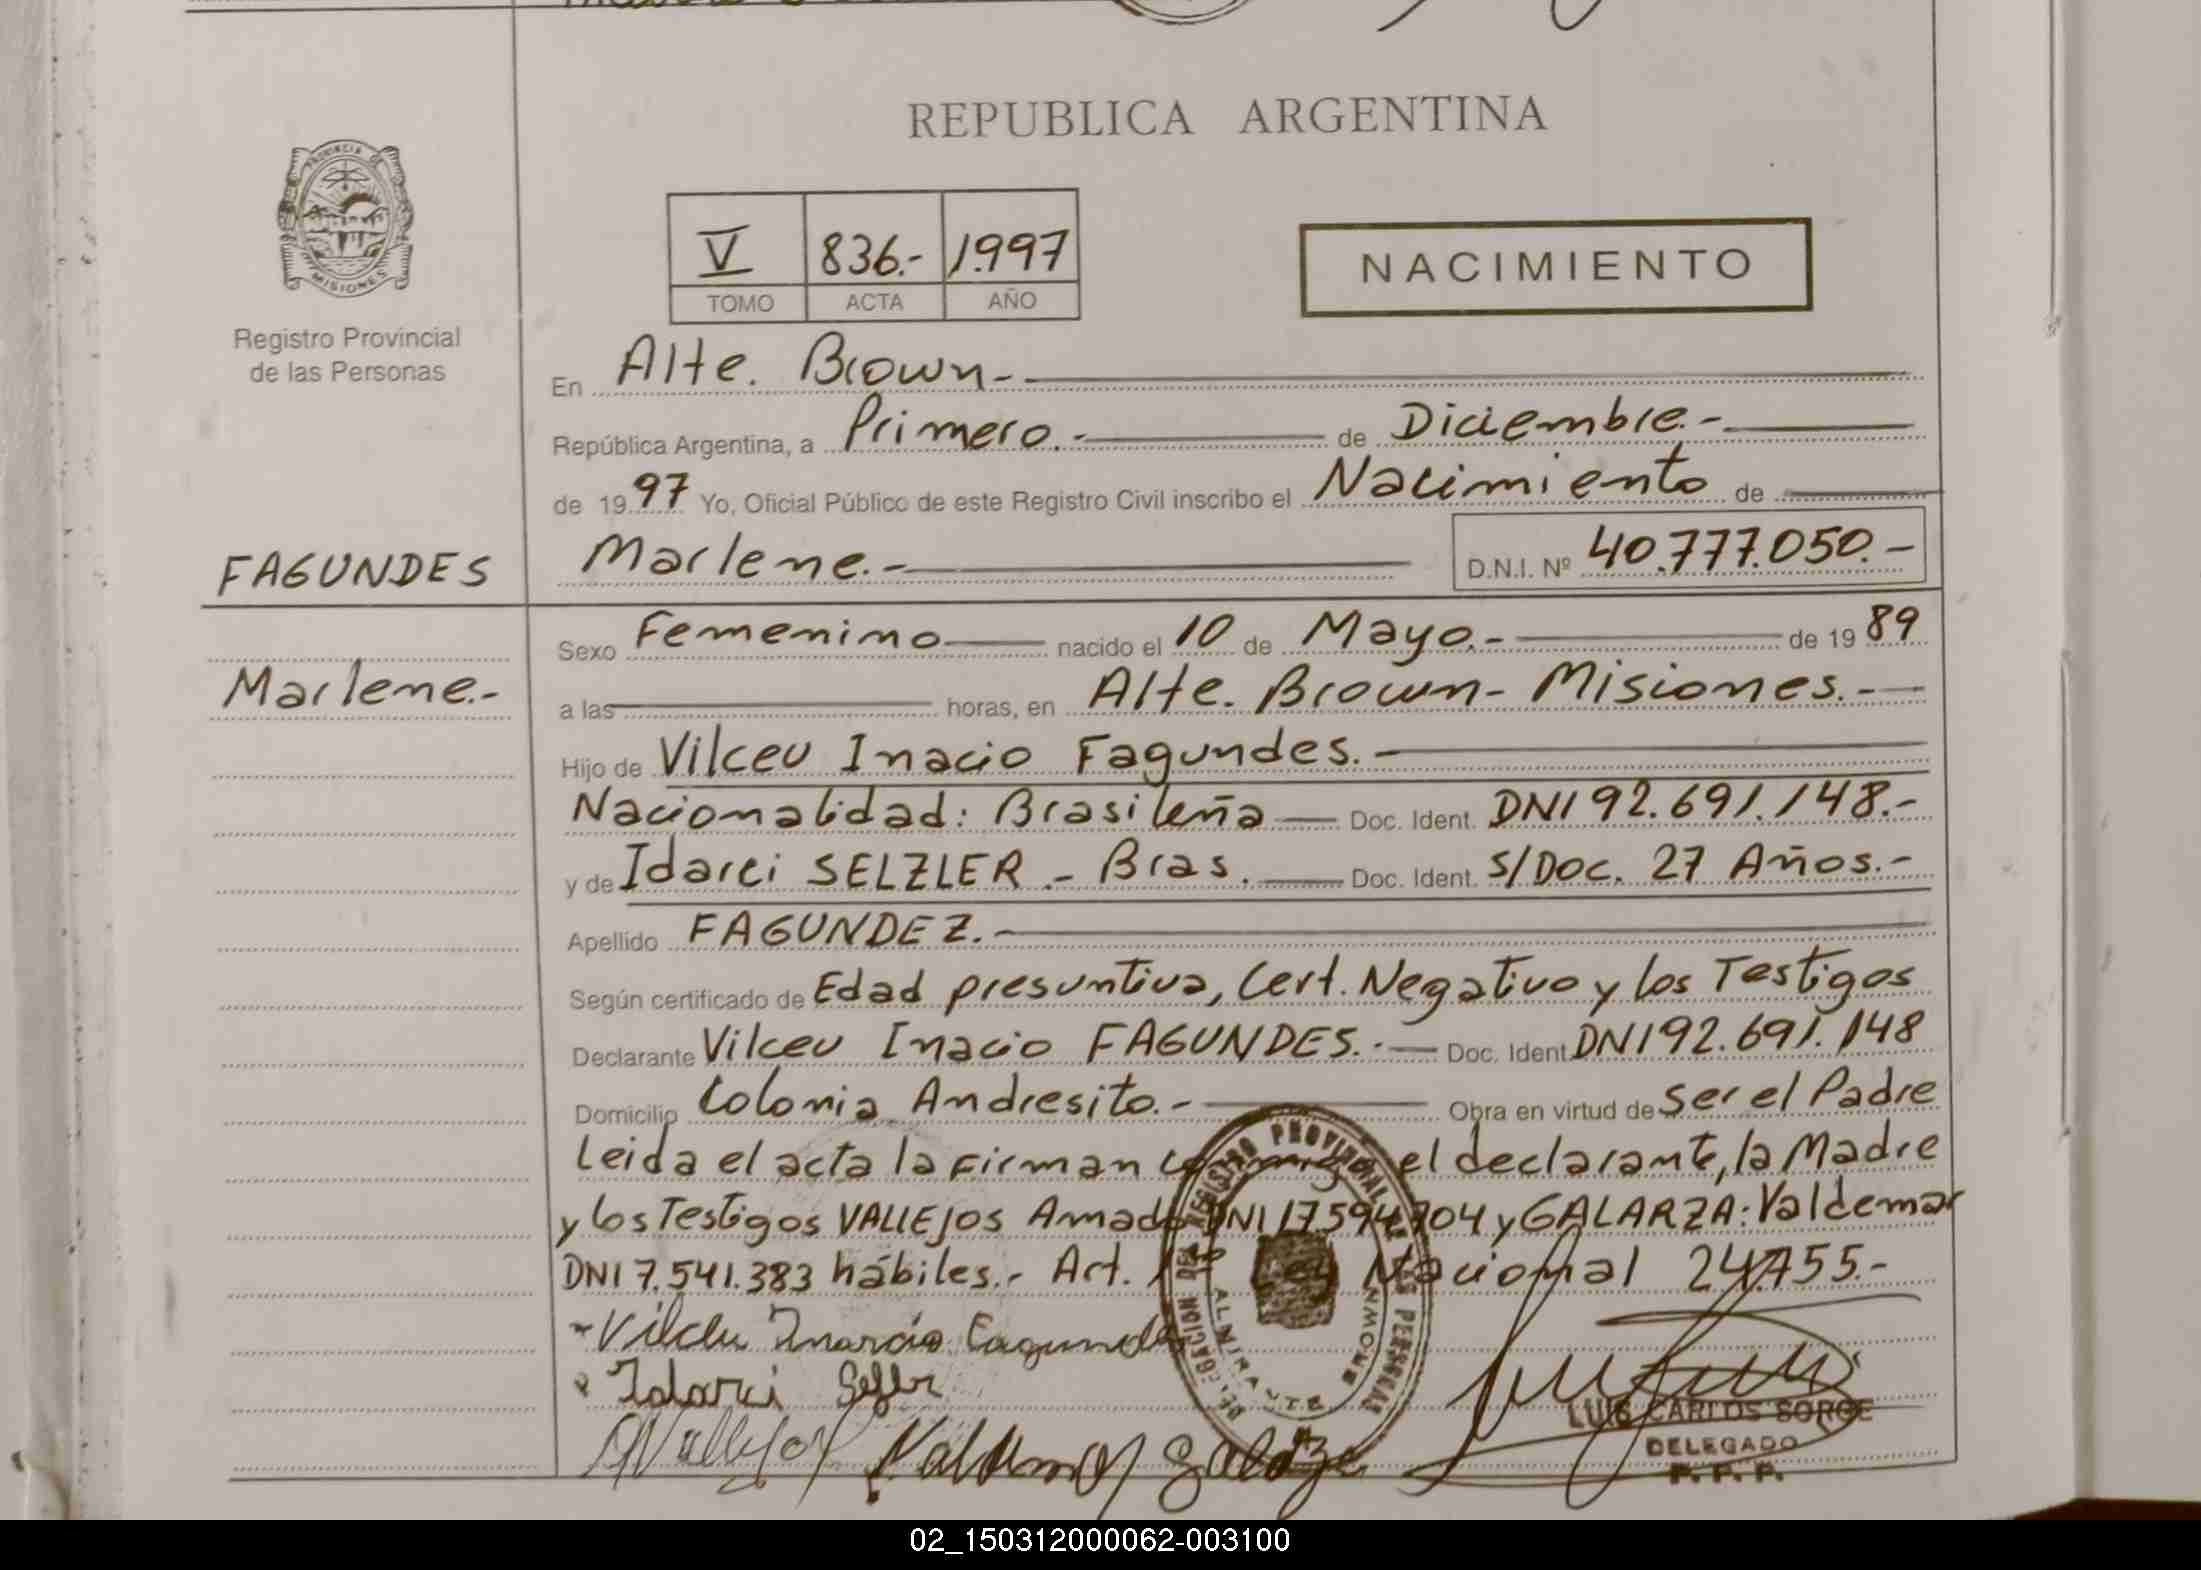 REPUBLICA ARGENTINA
PROVINCIA DE MISIONES
Registro Provincial
de las Personas
V 836.- 1.997
TOMO ACTA AÑO
NACIMIENTO
En Alte. Brown.-
República Argentina, a Primero.- de Diciembre.-
de 1997 Yo, Oficial Público de este Registro Civil inscribo el Nacimiento de
FAGUNDES
Marlene.- D.N.I. Nº 40.777.050.-
Sexo Femenino nacido el 10 de Mayo.- de 1989
Marlene.-
a las horas, en Alte. Brown- Misiones.-
Hijo de Vilceu Inacio Fagundes.-
Nacionalidad: Brasileña Doc. Ident. DNI 92.691.148.-
y de Idarci SELZLER.- Bras. Doc. Ident. S/DOC. 27 Años.-
Apellido FAGUNDEZ.-
Según certificado de Edad presuntiva, Cert. Negativo y los Testigos
Declarante Vilceu Inacio FAGUNDES.- Doc. Ident DNI 92.691.148
Domicilio Colonia Andresito.- Obra en virtud de ser el Padre
Leida el acta la Firman conmigo el declarante, la Madre
y los Testigos VALLEJOS Amado DNI 17.594.704 y GALARZA: Valdemar
DNI 7.541.383 hábiles.- Art. Ley Nacional 24.755.-
Vilceu Inacio Fagundes
Idarci
AVallejos Valdemar Galarza
DELEGACION DEL REGISTRO PROVINCIAL DE LAS PERSONAS
ALMIRANTE BROWN
LUIS CARLOS SORGE
DELEGADO
02_150312000062-003100